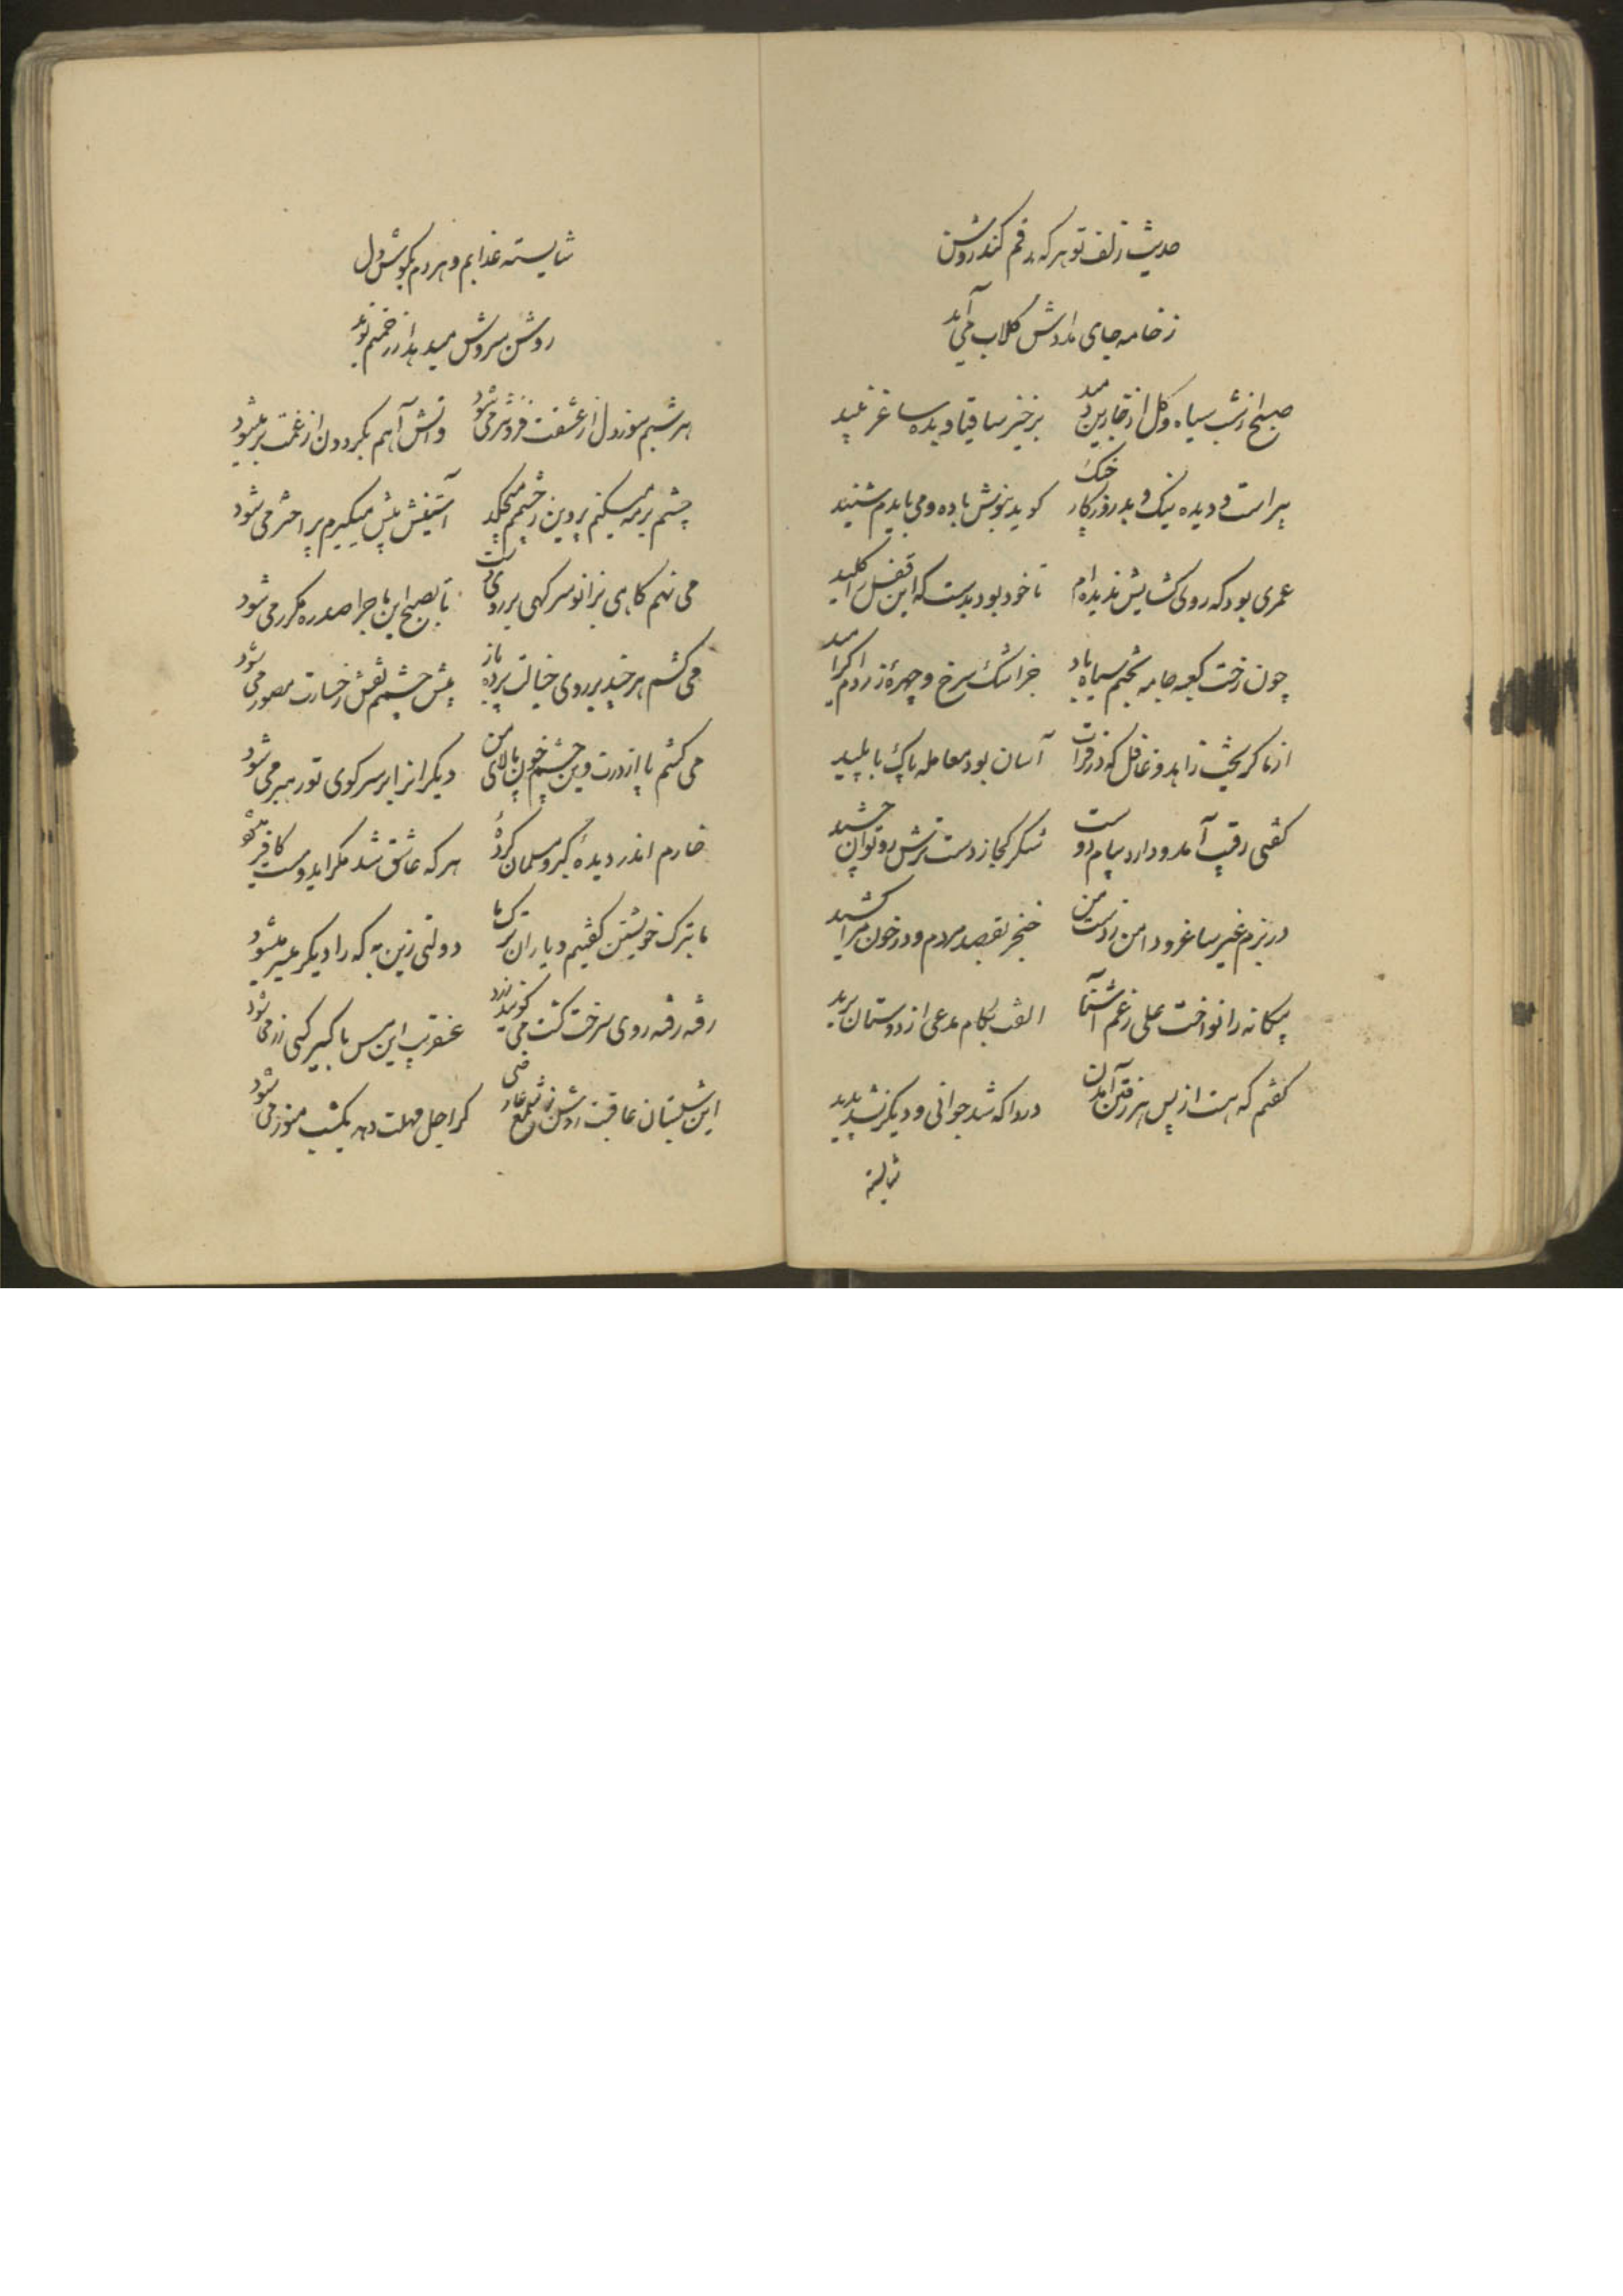 حدیث زلف تو هر که رقم کند روشن
ز خامه جای مدادش کلاب می آید
صبح از شب سیاه و کل از خار بر دمید برخیز ساقیا و بده ساغر نبید
پیر است و دیده نیک و بد روزکار کوید بنوش باده و می بایدم شنید
عمری بود که روی کشایش ندیده ام تا خود بود بدست که این قفل را کلید
چون رخت کعبه جامه بختم سیاه باد جز اشک سرخ و چهره زردم اکر
از ما کریخت زاهد و غافل که در فرات آسان بود معامله پاک با پلید
کفتی رقیب آمد و دارد پیام دوست شکر کجا ز دست ترش رو توان چشید
در بزم غیر ساغر و دامن ز دست من خنجر بقصد مردم و در خون مرا کشید
بیکانه را نواخت علی رغم آشنا الفت بکام مدعی از دوستان برید
کفتم که هست از پس هر رفتن آمدن دردا که شد جوانی و دیکر نشد پدید
شایسته
شایسته عذابم و هر دم بکوش دل
روشن سروش میدهد از رحمتم نوید
هر شبم سوز دل از عشقت فزونتر می شود و آتش آهم بکردون از غمت بر میشود
چشم بر مه میکنم پروین ز چشمم میچکد آستینش پیش میکیرم پر اختر می شود
می نهم کاهی بزانو سر کهی بر روی دست تا بصبح این ماجرا صد ره مکرر می شود
می کشم هر چند بر روی خیالت پرده باز پیش چشمم نقش رخسارت مصور می شود
می کشم پا از درت وین چشم خون پالای من دیکران را بر سر کوی تو رهبر می شود
خارم اندر دیده کبر و مسلمان کرده هر که عاشق شد مکر ای دوست کافر میشود
ما بترک خویشتن کفتیم و یاران ترک ما دولتی زین به که را دیکر میسر میشود
رفته رفته روی سرخت کشت می کویند زرد عنقریب این مس باکسیر کنی زر می شود
این شبستان عاقبت روشن شمع عارضی کر اجل مهلت دهد یکشب منور می شود